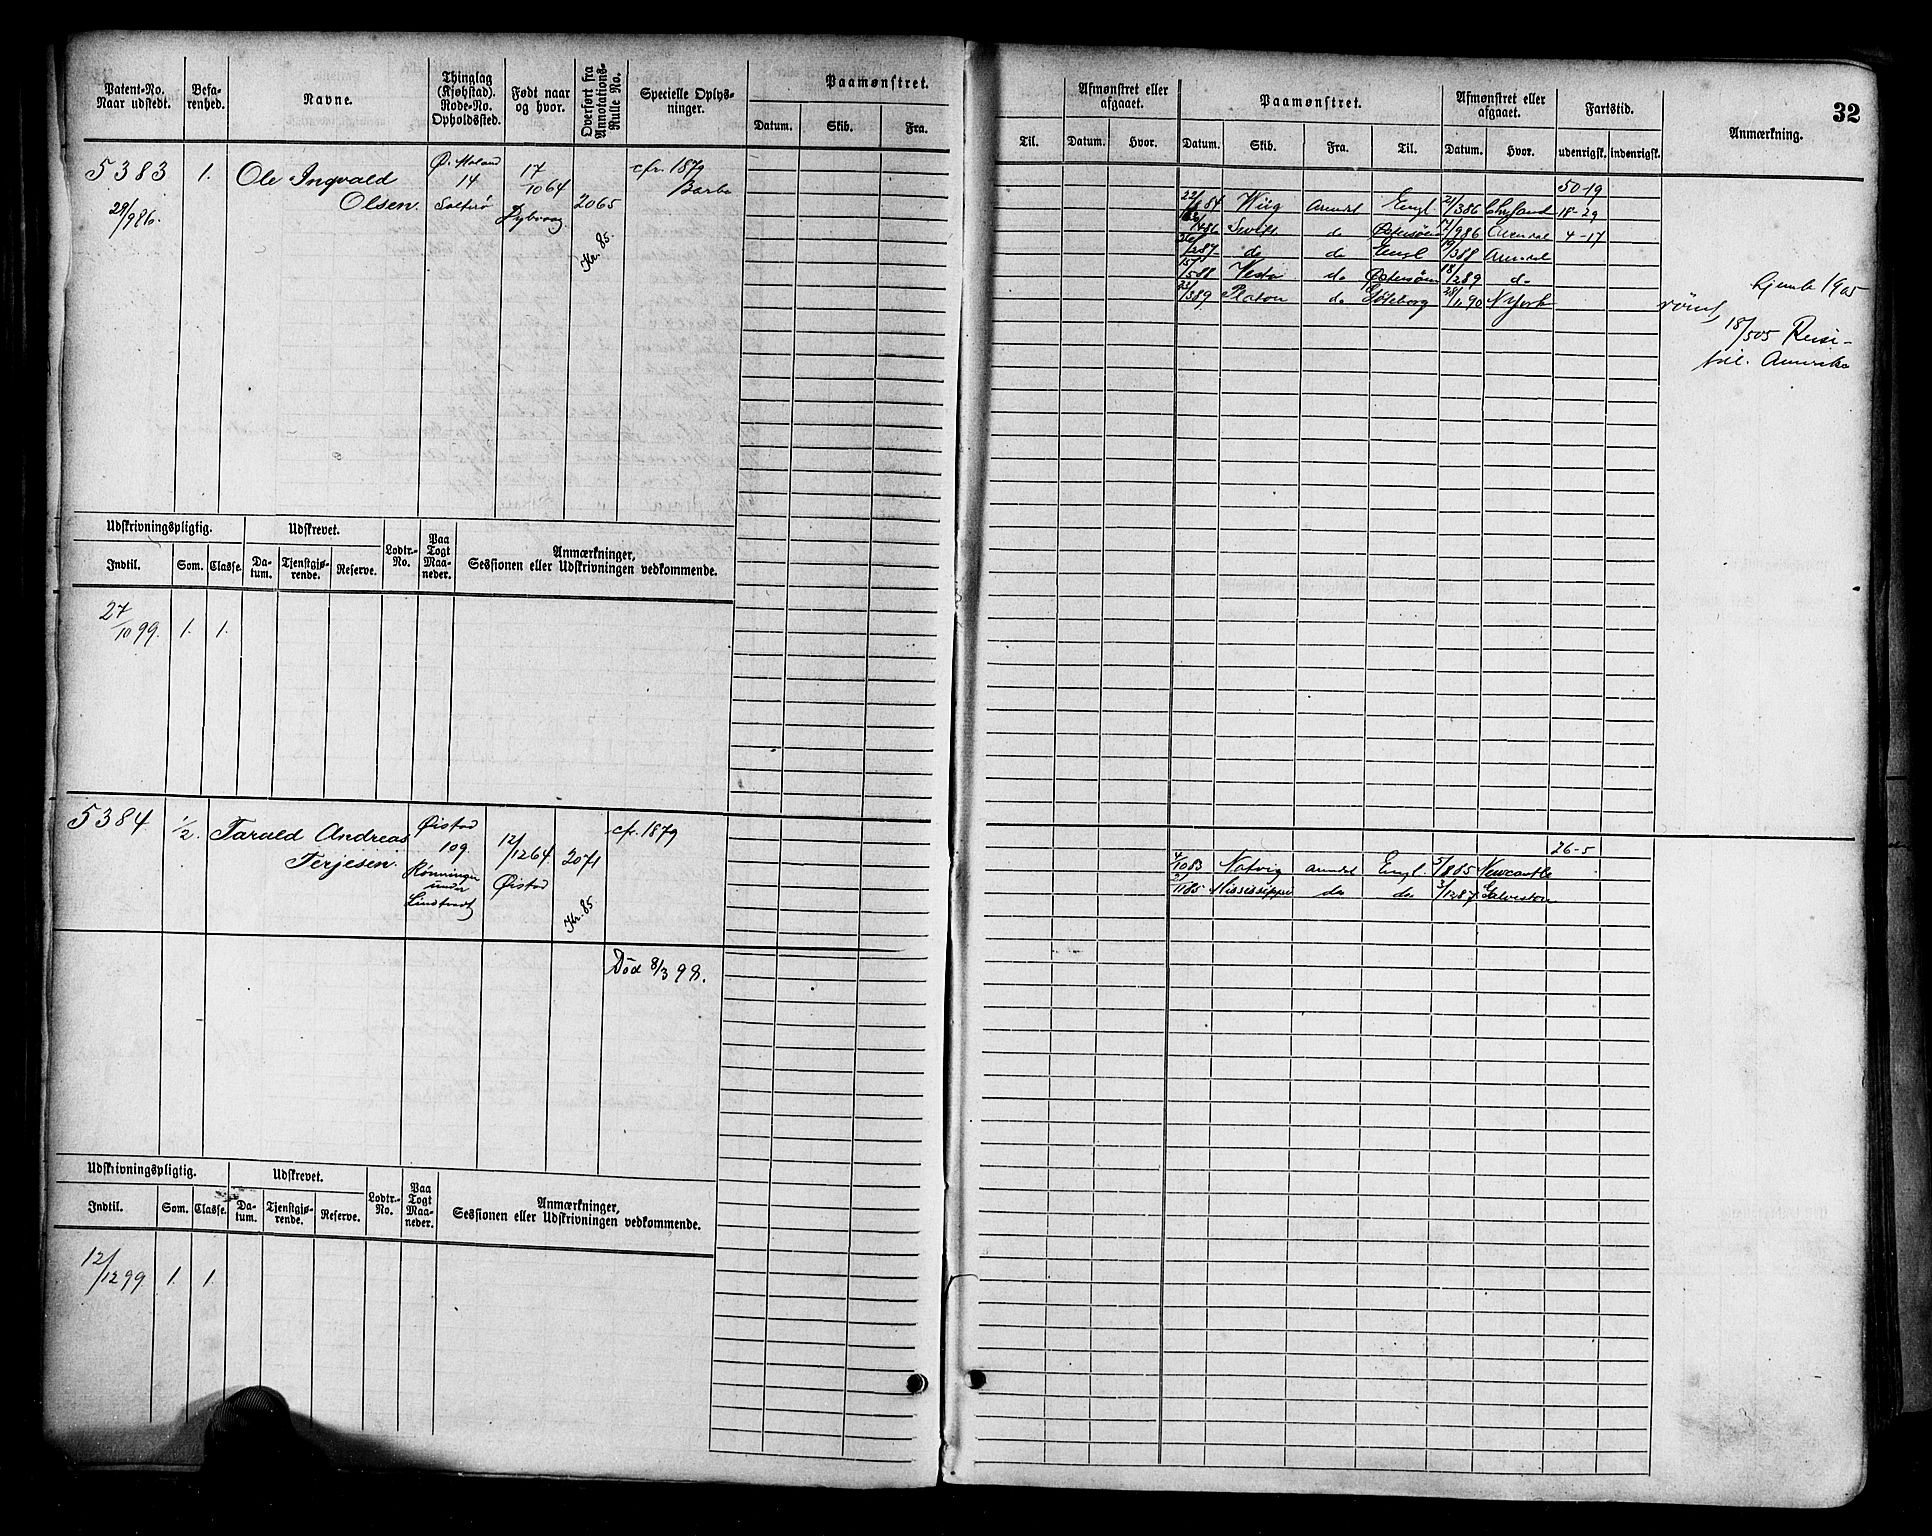 32
Patent-No. Naar udstedt.
Befarenhed.
Navne.
Thinglag (Kjøbstad). Rode-No. Opholdssted.
Født naar og hvor.
Overført fra Annotations-Rulle No.
Specielle Oplysninger.
Paamønstret.
Datum. Skib. Fra.
Til.
Afmønstret eller afgaaet.
Datum. Hvor.
Paamønstret.
Datum. Skib. Fra. Til.
Afmønstret eller afgaaet.
Datum. Hvor.
Fartstid.
udenrigsk. indenrigsk.
Anmærkning.
5383 1. Ole Ingvald Olsen.
29/9 86.
14
17/10 64
Dybvaag
2065
Kr. 85.
cfr. 1879
Barbo
50-19
Wiig Arendal Engl. 21/3 86 18-29
do Østersøen 7/9 86 Arendal 4-17
do do Engl 19/3 88 Arendal
15/5 88 Vesta do Østersøen 18/2 89 do
23/3 89 Platon do Göteborg 28/11 90 N York
Hjemle 1905
18/5 05 Reise-
til Amerika
Udskrivningspligtig.
Udskrevet.
Lodtr.-No.
Paa Togt Maaneder.
Anmærkninger, Sessionen eller Udskrivningen vedkommende.
Indtil. Som. Classe. Datum. Tjenstgjørende. Reserve.
27/10 99. 1. 1.
5384 1/2. Tarald Andreas Terjesen.
Øistad
109.
Rønningen
under
Lindtveit
12/12 64
Øistad
2071
Kr. 85
cfr. 1879
Død 8/3 98.
26-5
4/10 83 Natvig Arendal Engl. 5/8 85 Newcastle
Mississippi do do 3/12 87 Galveston
Udskrivningspligtig.
Udskrevet.
Lodtr.-No.
Paa Togt Maaneder.
Anmærkninger, Sessionen eller Udskrivningen vedkommende.
Indtil. Som. Classe. Datum. Tjenstgjørende. Reserve.
12/12 99. 1. 1.